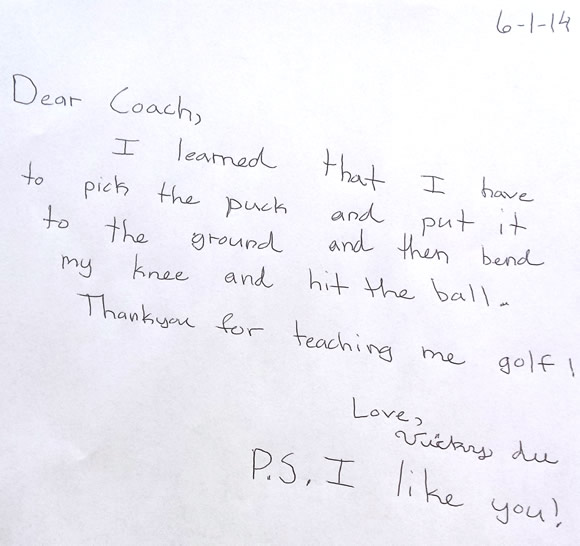 6-1-14
Dear Coach,
I learned that I have
to pick the puck and put it
to the ground and then bend
my knee and hit the ball.
Thankyou for teaching me golf!
Love,
Vicky du
P.S. I like you!